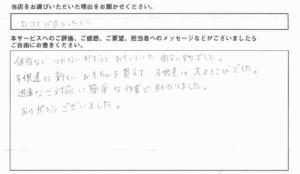 当店をお選びいただいた理由をお聞かせください。
口コミが良かったから
本サービスへのご評価、ご感想、ご要望、担当者へのメッセージなどございましたら
ご自由にお書きください。
値段など つかないだろうと おもっていた 物でした。
子供達に 新しい おもちゃを 買えて、子供達は 大よろこびでした。
迅速なご対応に 簡単な 作業で 助かりました。
ありがとうございました。